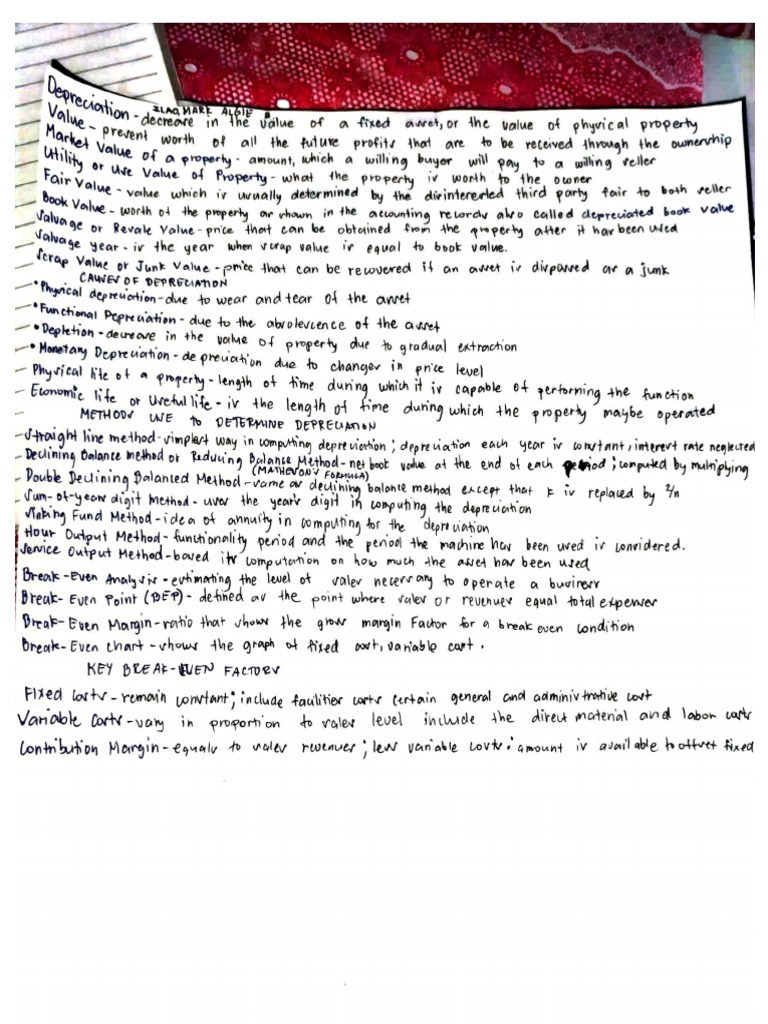 ILAO, MARK ALGIE B
Depreciation - decrease in the value of a fixed asset, or the value of physical property
Value - present worth of all the future profits that are to be received through the ownership
Market Value of a property - amount, which a willing buyer will pay to a willing seller
Utility or Use Value of Property - what the property is worth to the owner
Fair Value - value which is usually determined by the disinterested third party fair to both seller
Book Value - worth of the property as shown in the accounting records also called depreciated book value
Salvage or Resale Value - price that can be obtained from the property after it has been used
Salvage year - is the year when scrap value is equal to book value.
Scrap Value or Junk Value - price that can be recovered if an asset is disposed as a junk
CAUSES OF DEPRECIATION
• Physical depreciation - due to wear and tear of the asset
• Functional Depreciation - due to the absolescence of the asset
• Depletion - decrease in the value of property due to gradual extraction
• Monetary Depreciation - depreciation due to changes in price level
Physical life of a property - length of time during which it is capable of performing the function
Economic life or Useful life - is the length of time during which the property maybe operated
METHODS USE TO DETERMINE DEPRECIATION
- Straight line method - simplest way in computing depreciation; depreciation each year is constant, interest rate neglected
- Declining Balance method or Reducing Balance Method - net book value at the end of each period; computed by multiplying
(MATHESONS FORMULA)
- Double Declining Balanced Method - same as declining balance method except that k is replaced by 2/n
- Sum-of-years digit Method - uses the years digit in computing the depreciation
- Sinking Fund Method - idea of annuity in computing for the depreciation
- Hour Output Method - functionality period and the period the machine has been used is considered.
- Service Output Method - based its computation on how much the asset has been used
Break-Even Analysis - estimating the level of sales necessary to operate a business
Break-Even Point (BEP) - defined as the point where sales or revenues equal total expenses
Break-Even Margin - ratio that shows the gross margin Factor for a break even condition
Break-Even chart - shows the graph of fixed cost, variable cost.
KEY BREAK-EVEN FACTORS
Fixed Costs - remain constant; include facilities costs certain general and administrative cost
Variable Costs - vary in proportion to sales level include the direct material and labor costs
Contribution Margin - equals to sales revenues; less variable costs; amount is available to offset fixed